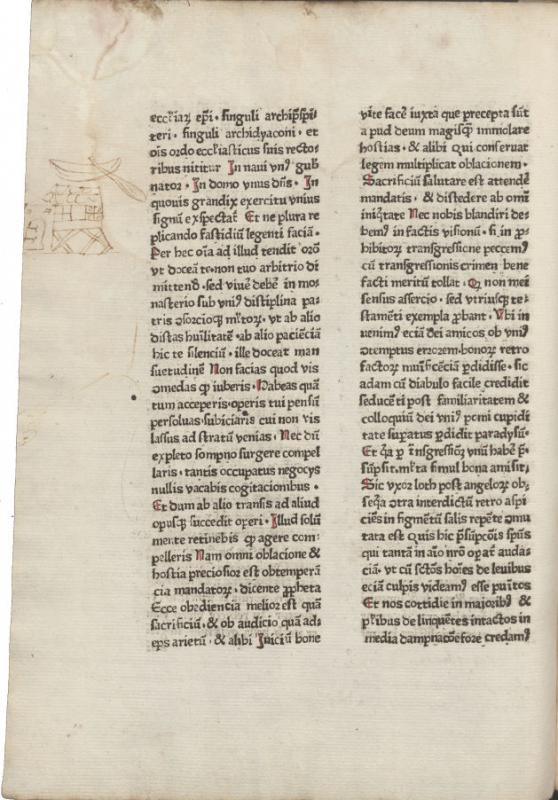 eccl̄iaꝝ ep̄i · singuli archip̄sp̄i
teri · singuli archidyaconi · et
oīs ordo eccl̄esiasticus suis recto
ribus nititur In naui vnꝰ gub̄
nator · In domo vnus dn̄s · In
quouis grandi exercitu vnius
signū exspectat̄ Et ne plura re
plicando fastidiū legenti faciā ·
Per hec oīa ad illud tendit orō
vt doceā te · non tuo arbitrio di
mittend̄ · sed viuē debē in mo
nasterio sub vnꝰ disciplina pa
tris ɔsorcioqꝫ ml̄toꝝ · vt ab alio
discas hūilitatē · ab alio paciēciā
hic te silenciū · ille doceat man
suetudinē Non facias quod vis
ɔmedas qd̄ iuberis · Habeas quā
tum acceperis · operis tui pensū
persoluas · subiciaris cui non vis
lassus ad stratū venias · Nec dū
expleto sompno surgere compel
laris · tantis occupatus negocys
nullis vacabis cogitacionibus ·
Et dum ab alio transis ad aliud
opusqꝫ succedit operi · Illud solū
mente retinebis qd̄ agere com
pelleris Nam omni oblacione &
hostia preciosior est obtemperā
cia mandatoꝝ · dicente ꝓpheta
Ecce obediencia melior est quā
sacrificiū · & ob audicio quā ad
eps arietū · & alibi Iniciū bone
vite facē iuxta que precepta sūt
a pud deum magisqꝫ immolare
hostias · & alibi Qui conseruat
legem multiplicat oblacionem ·
Sacrificiū salutare est attendē
mandatis · & discedere ab omī
iniq̇tate Nec nobis blandiri de
bemꝰ in factis visionū · si in ꝓ
hibitoꝝ transgressione peccemꝰ
cū transgressionis crimen bene
facti meritū tollat · Qd̄ non mei
sensus assercio · sed vtriusqꝫ te
stamēti exempla ꝓbant · Vbi in
uenimꝰ eciā dei amicos ob vnꝰ
ɔtemptus errorem · bonoꝝ retro
factoꝝ munificēciā ꝑdidisse · sic
adam cū diabulo facile credidit
seducēti post familiaritatem &
colloquiū dei vniꝰ pomi cupidi
tate suꝑatus ꝑdidit paradysū ·
Et q̄a ꝑ tn̄sgressiōꝫ vnū habē p̄
sūpsit · ml̄ta simul bona amisit
Sic vxor loth post angeloꝝ ob
seq̇a ɔtra interdictū retro aspi
ciēs in figmentū salis repēte ɔmu
tata est Quis hic p̄sūpcōis spūs
qui tantā in aīo nr̄o opat̄ auda
ciā · vt cū scōs hoīes de leuibus
eciā culpis videamꝰ esse puītos
Et nos cottidie in maioribꝰ &
pl̄ibus de linquētes intactos in
media dampnacōe fore credamꝰ